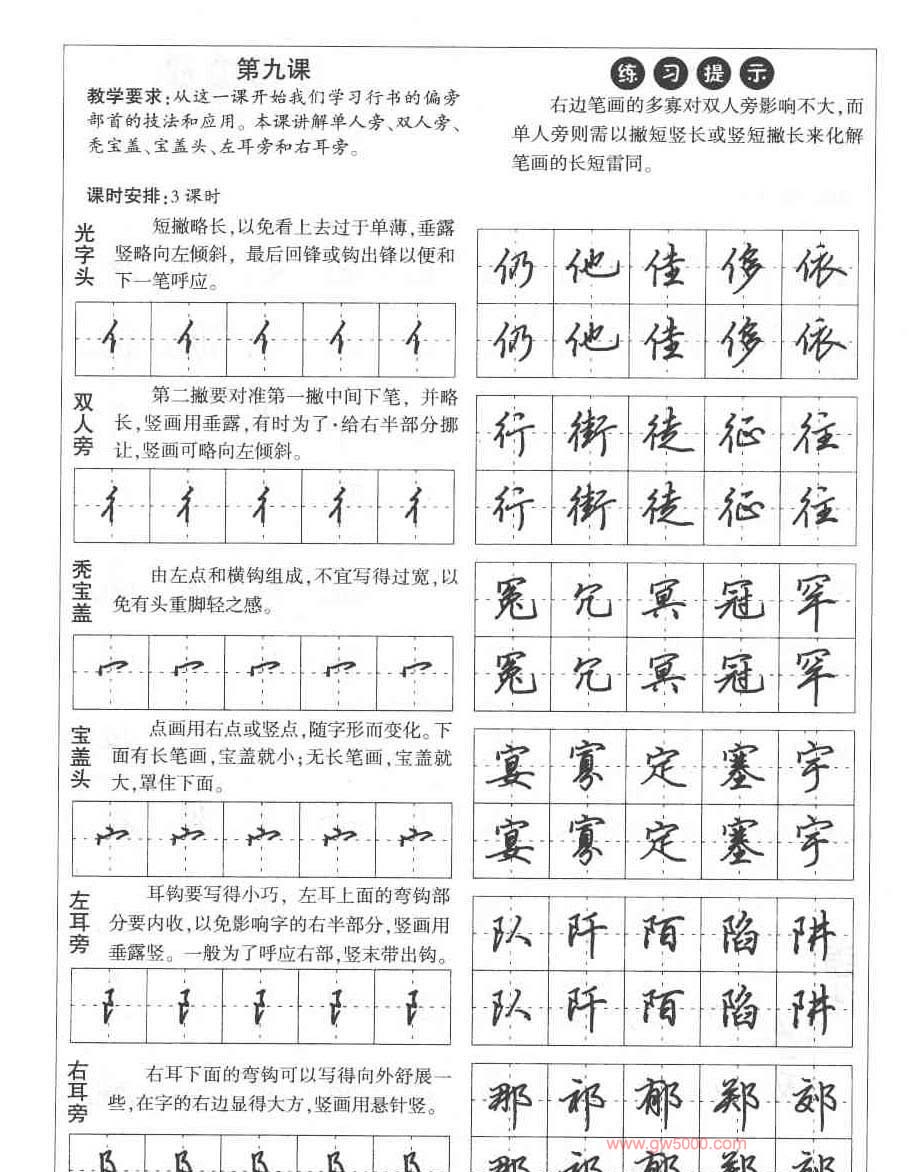 第九课
教学要求:从这一课开始我们学习行书的偏旁
部首的技法和应用。本课讲解单人旁、双人旁、
秃宝盖、宝盖头、左耳旁和右耳旁。
课时安排:3课时
练习提示
右边笔画的多寡对双人旁影响不大,而
单人旁则需以撇短竖长或竖短撇长来化解
笔画的长短雷同。
光字头
短撇略长,以免看上去过于单薄,垂露
竖略向左倾斜，最后回锋或钩出锋以便和
下一笔呼应。
亻亻亻亻亻
仍他佳侈依
仍他佳侈依
双人旁
第二撇要对准第一撇中间下笔，并略
长,竖画用垂露,有时为了·给右半部分挪
让,竖画可略向左倾斜。
彳彳彳彳彳
行街徒征往
行街徒征往
秃宝盖
由左点和横钩组成,不宜写得过宽,以
免有头重脚轻之感。
冖冖冖冖冖
冤冗冥冠罕
冤冗冥冠罕
宝盖头
点画用右点或竖点,随字形而变化。下
面有长笔画,宝盖就小;无长笔画,宝盖就
大,罩住下面。
宀宀宀宀宀
宴寡定塞宇
宴寡定塞宇
左耳旁
耳钩要写得小巧，左耳上面的弯钩部
分要内收,以免影响字的右半部分,竖画用
垂露竖。一般为了呼应右部,竖末带出钩。
阝阝阝阝阝
队阡陌陷阱
队阡陌陷阱
右耳旁
右耳下面的弯钩可以写得向外舒展一
些,在字的右边显得大方,竖画用悬针竖。
阝阝阝阝阝
那祁郁郑郊
那祁郁郑郊
www.gw5000.com